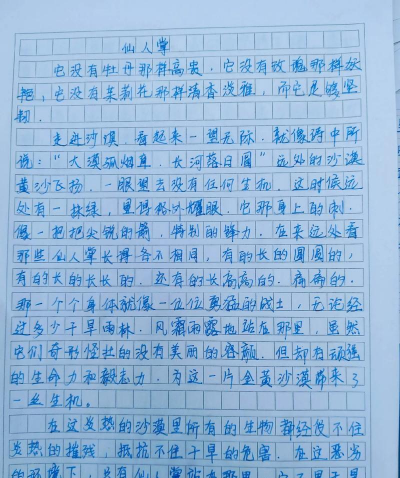 仙人掌
它没有牡丹那样高贵，它没有玫瑰那样妖
艳，它没有茉莉花那样清香淡雅，而它足够坚
韧。
走进沙漠，看起来一望无际，就像诗中所
说："大漠孤烟直，长河落日圆"远处的沙漠
黄沙飞扬，一眼望去没有任何生机，这时候远
处有一抹绿，显得格外耀眼，它那身上的刺，
像一把把尖锐的箭，特别的锋力，在来远处看
那些仙人掌长得各不相同，有的长的圆圆的，
有的长的长长的，还有的长高高的，扁扁的，
那一个个身体就像一位位勇猛的战士，无论经
过多少干旱雨林，风霜雨露地站在那里，虽然
它们奇形怪壮的没有美丽的容颜，但却有顽强
的生命力和毅志力，为这一片金黄沙漠带来了
一丝生机。
在这炎热的沙漠里所有的生物都经受不住
炎热的摧残，抵抗不住干旱的危害，在这恶劣
的环境下，只有仙人掌站在那里，